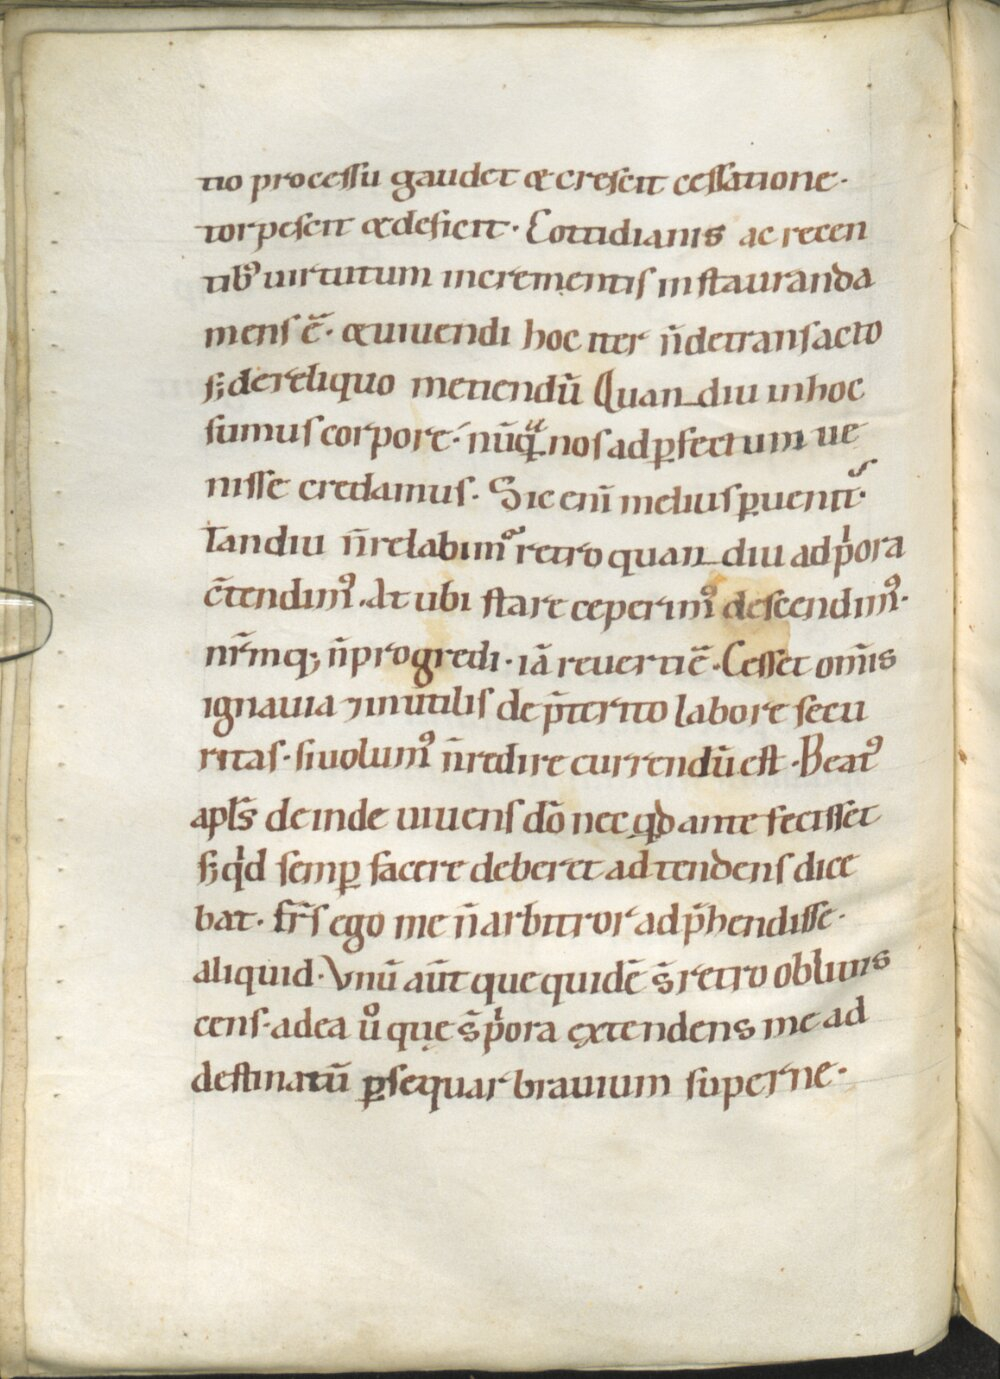 tio processu gaudet & crescit cessatione·
torpescit & deficit· Cottidianis ac recen
tibꝰ uirtutum incrementis instauranda
mens ē· & uiuendi hoc iter n̄ de transacto
s; de reliquo metiendū Quan diu in hoc
sumus corpore· nūqͣ nos ad ꝑfectum ue
nisse credamus· Sic eni̅ melius ꝑuenit᷒·
Tandiu n̄ relabimꝰ retro quan diu ad pͥora
c̄tendimꝰ· At ubi stare ceperimꝰ descendimꝰ·
nr̄mq; n̄ progredi· iā reuerti ē· Cesset om̄is
ignauia ⁊ inutilis de p̄terito labore secu
ritas· si uolumꝰ n̄ redire currendū est· Beatꝰ
apl̄s deinde uiuens dō nec qd̄ ante fecisset
s; qͥd semꝑ facere deberet adtendens dice
bat· fr̄s ego me n̄ arbitror adp̄hendisse·
aliquid· Vnū aūt que quidē s̄ retro obliuis
cens· ad ea uͦ quę s̄ pͥora extendens me ad
destinatū ꝑsequar brauium superne·